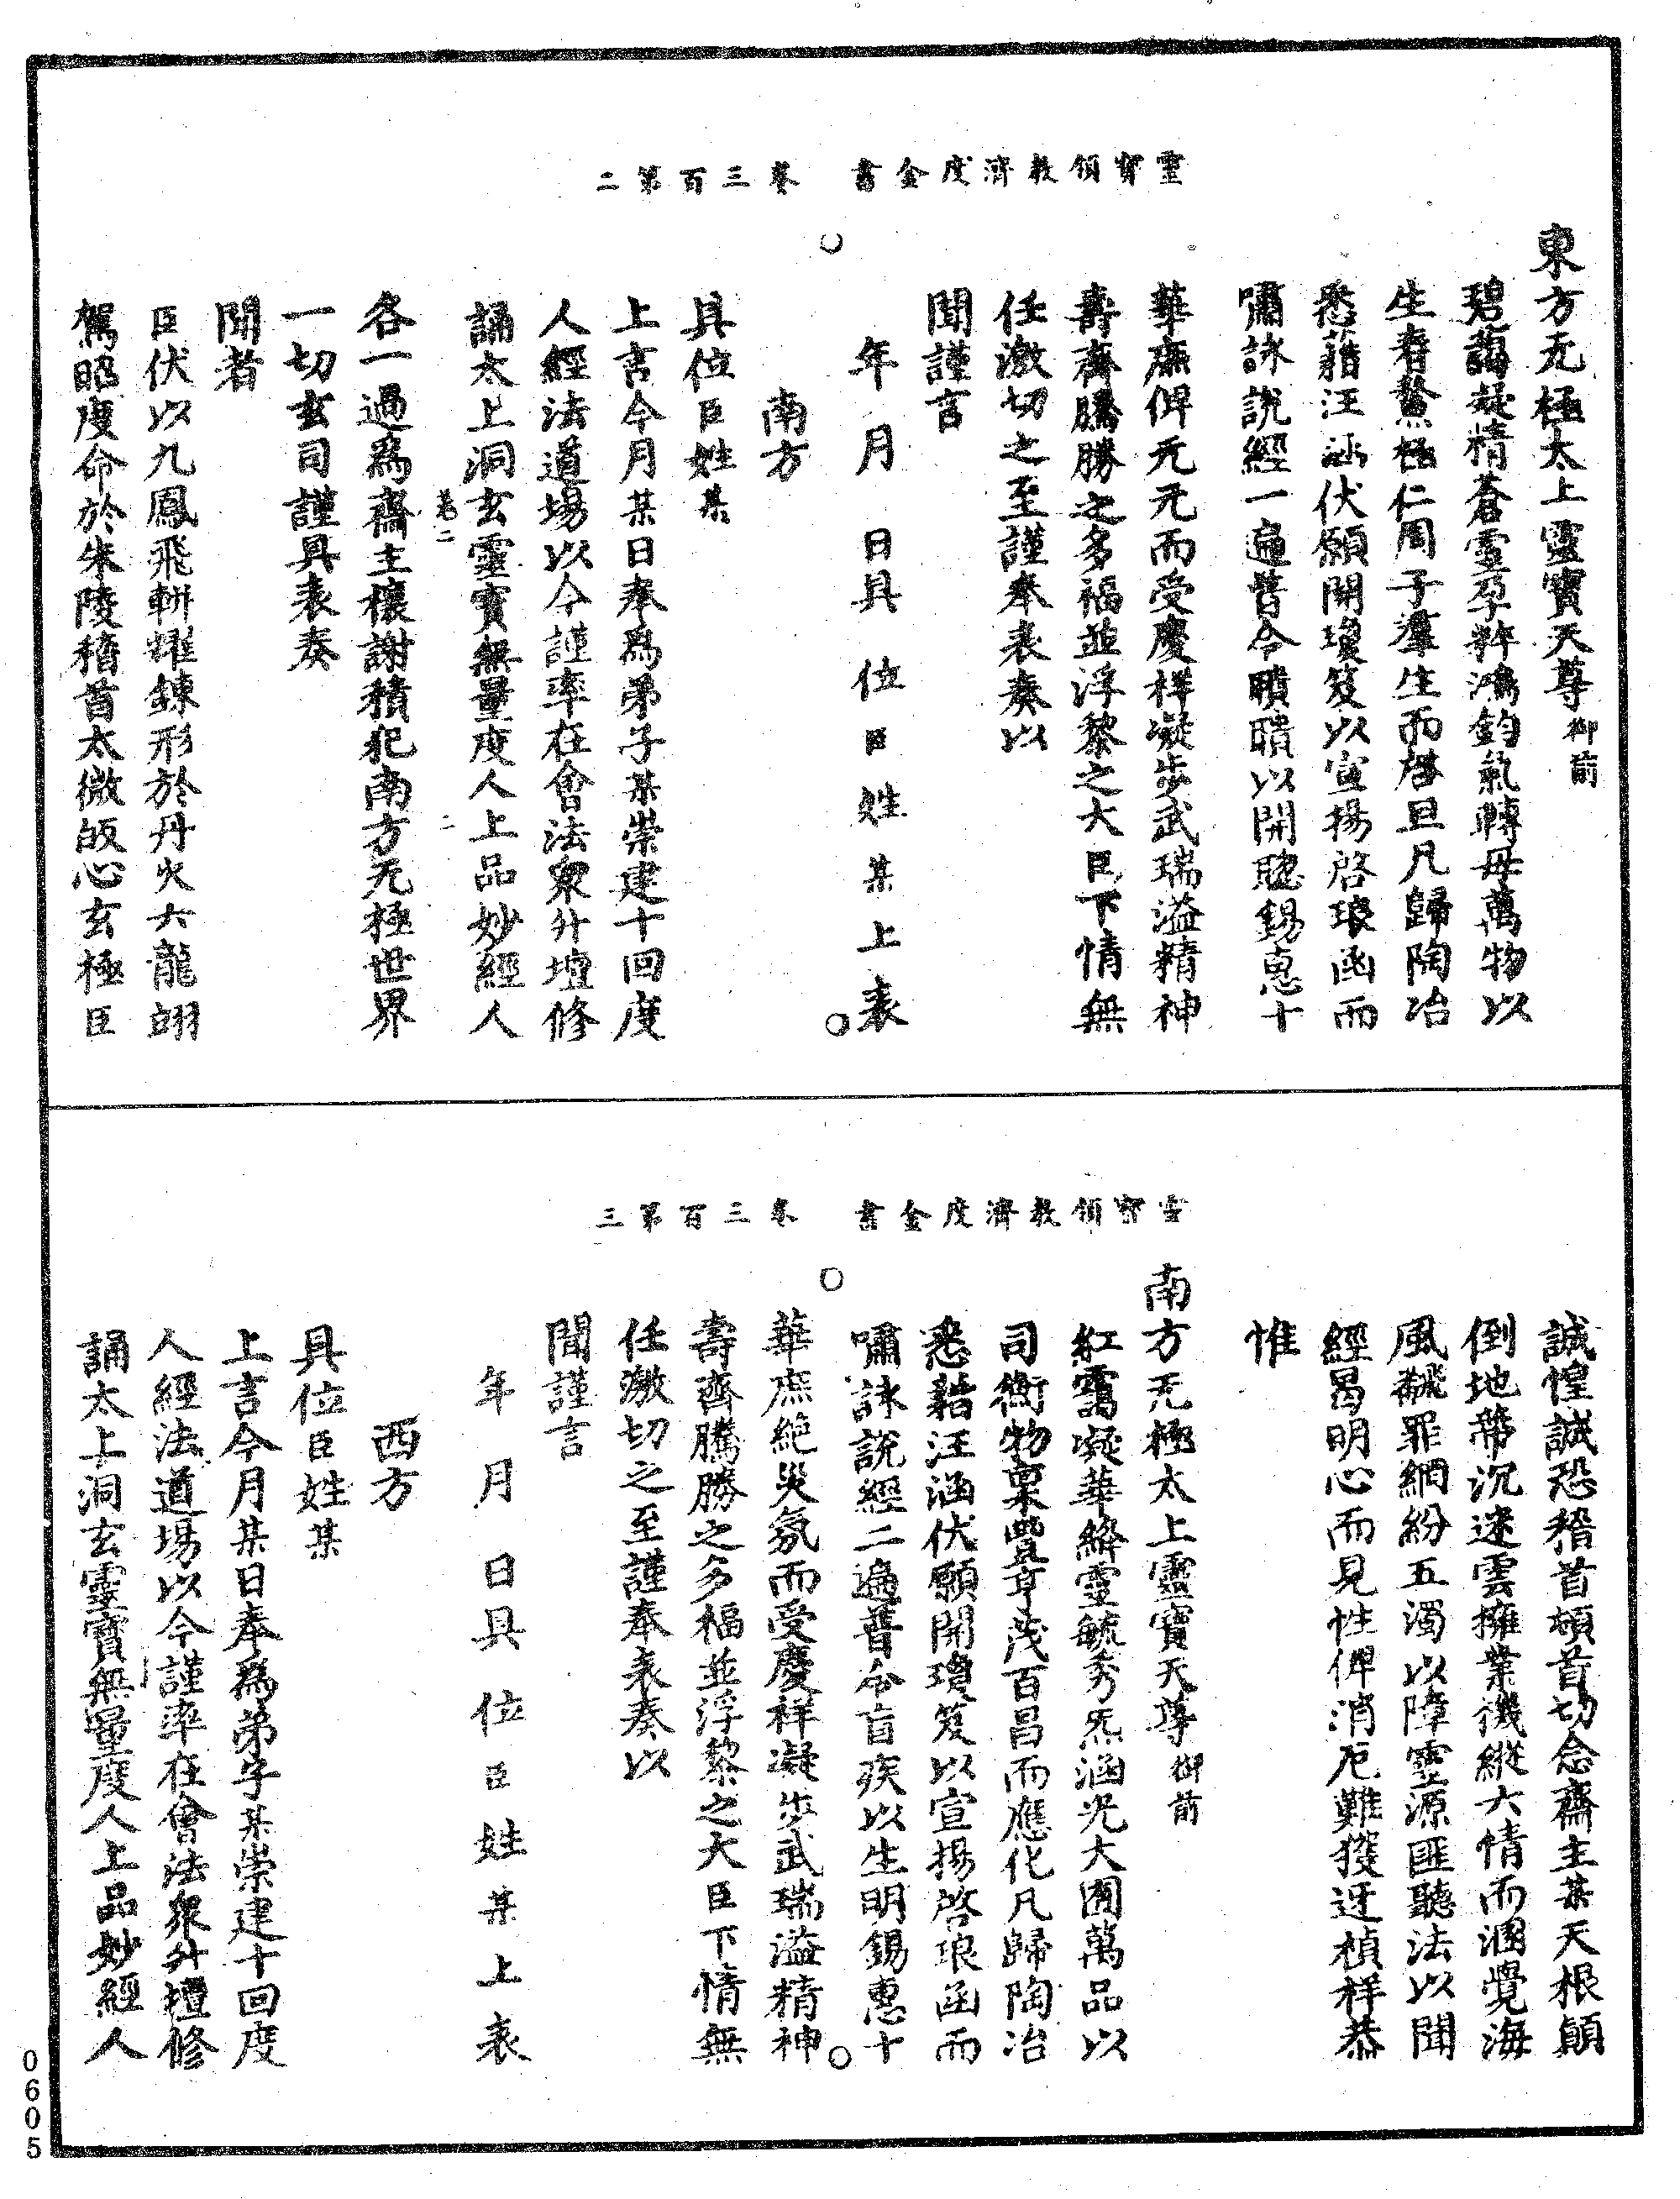 靈寶領教濟度金書　卷三百第二
東方无極太上靈寶天尊御前
碧靄凝精蒼靈孕粹鴻鈞氣轉毋萬物以
生春鰲極仁周子羣生而啓旦凡歸陶冶
悉藉汪涵伏願開瓊笈以宣揚啓琅函而
嘯詠說經一遍普令聵聵以開聰錫惠十
華庶俾无元而受慶祥凝步武瑞溢精神
壽齊騰勝之多福並浮黎之大臣下情無
任激切之至謹奉表奏以
聞謹言
年　月　日具　位　臣　姓　某　上　表
南方
具位臣姓某
上言今月某日奉爲弟子某崇建十回度
人經法道場以今謹率在會法衆升壇修
誦太上洞玄靈寶無量度人上品妙經人
卷二　二
各一過爲齋主禳謝積犯南方无極世界
一切玄司謹具表奏
聞者
臣伏以九鳳飛輧耀鍊形於丹火六龍翊
駕昭度命於朱陵稽首太微皈心玄極臣
靈寶領教濟度金書　卷三百第三
誠惶誠恐稽首頓首切念齋主某天根顛
倒地蔕沉迷雲擁業機縱六情而溷覺海
風飜罪網紛五濁以障靈源匪聽法以聞
經曷明心而見性俾消厄難獲迓禎祥恭
惟
南方无極太上靈寶天尊御前
紅靄凝華絳靈毓秀炁涵光大囿萬品以
司衡物稟亨茂百昌而應化凡歸陶冶
悉藉汪涵伏願開瓊笈以宣揚啓琅函而
嘯詠說經二遍普令盲疾以生明錫惠十
華庶絶災氛而受慶祥凝步武瑞溢精神
壽齊騰勝之多福並浮黎之大臣下情無
任激切之至謹奉表奏以
聞謹言
年　月　日具　位　臣　姓　某　上　表
西方
具位臣姓某
上言今月某日奉爲弟子某崇建十回度
人經法道場以今謹率在會法衆升壇修
誦太上洞玄靈寶無量度人上品妙經人
0605